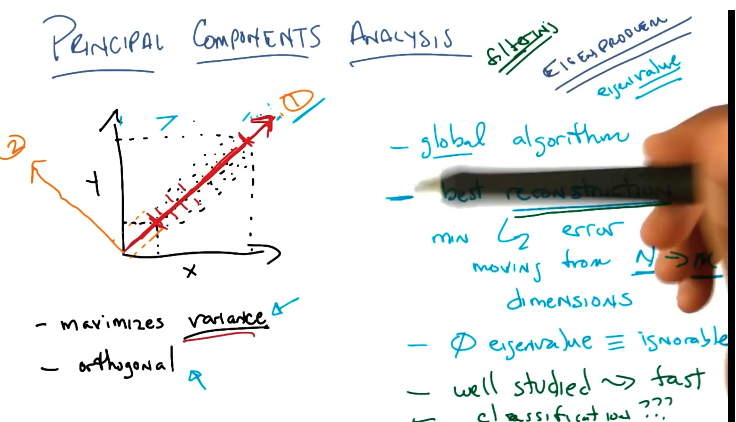 PRINCIPAL COMPONENTS ANALYSIS
filtering
EIGENPROBLEM
eigenvalue
1
2
Y
X
- maximizes variance
- orthogonal
- global algorithm
- best reconstruction
min error
moving from N → m
dimensions
- Ø eigenvalue ≡ ignorable
- well studied ~> fast
- classification???